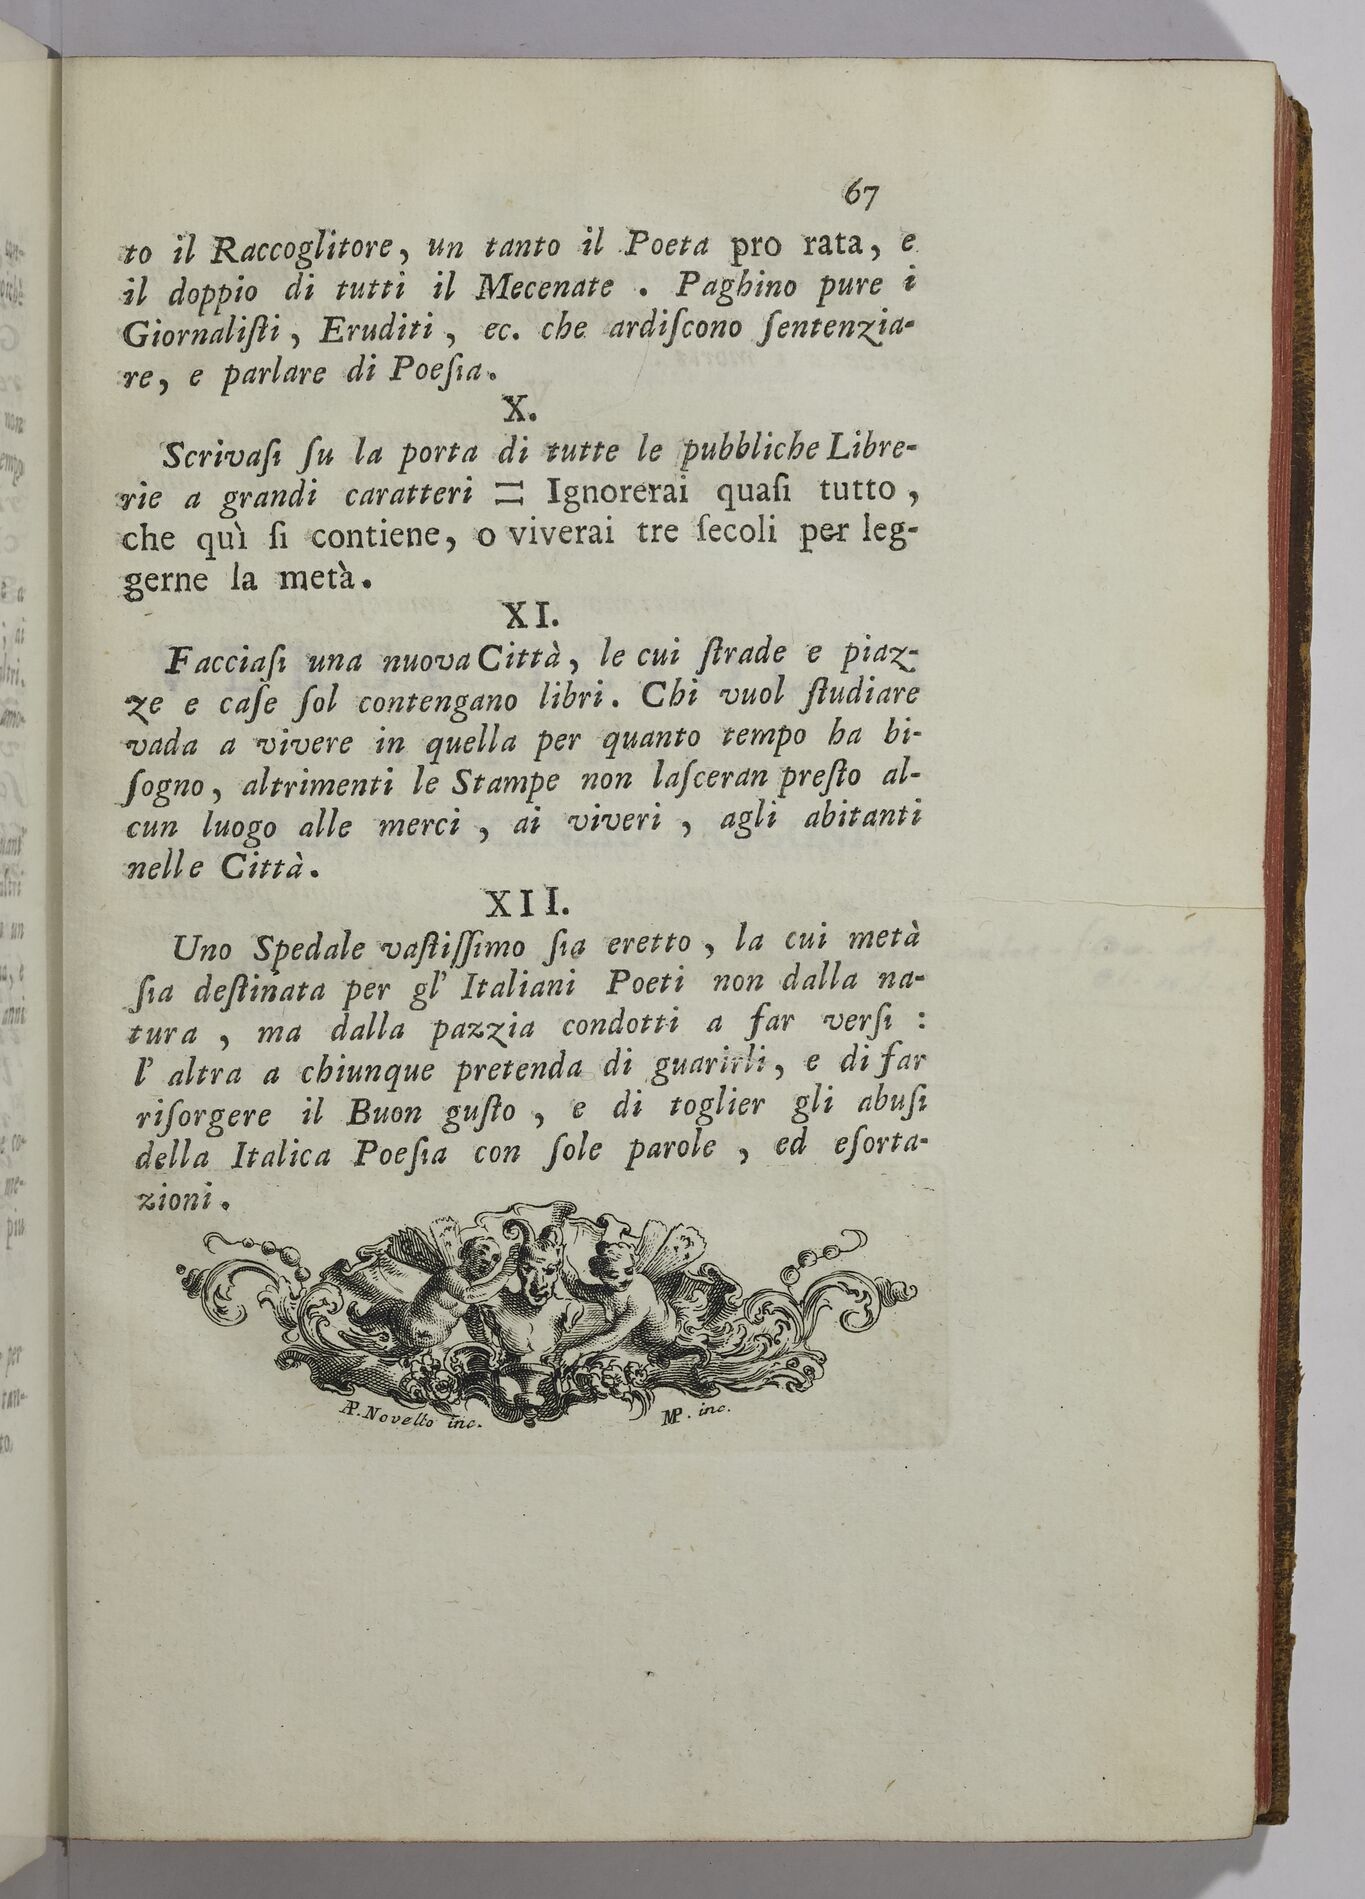 67
to il Raccoglitore, un tanto il Poeta pro rata, e
il doppio di tutti il Mecenate . Paghino pure i
Giornaliſti, Eruditi, ec. che ardiſcono ſentenzia-
re, e parlare di Poeſia.
X.
Scrivaſi ſu la porta di tutte le pubbliche Libre-
rie a grandi caratteri = Ignorerai quaſi tutto,
che quì ſi contiene, o viverai tre ſecoli per leg-
gerne la metà.
XI.
Facciaſi una nuova Città, le cui ſtrade e piaz-
ze e caſe ſol contengano libri. Chi vuol ſtudiare
vada a vivere in quella per quanto tempo ha bi-
ſogno, altrimenti le Stampe non laſceran preſto al-
cun luogo alle merci, ai viveri, agli abitanti
nelle Città.
XII.
Uno Spedale vaſtiſſimo ſia eretto, la cui metà
ſia deſtinata per gl' Italiani Poeti non dalla na-
tura, ma dalla pazzia condotti a far verſi :
l' altra a chiunque pretenda di guarirli, e di far
riſorgere il Buon guſto, e di toglier gli abuſi
della Italica Poeſia con ſole parole, ed eſorta-
zioni.
AP. Novello inc.
MP. inc.